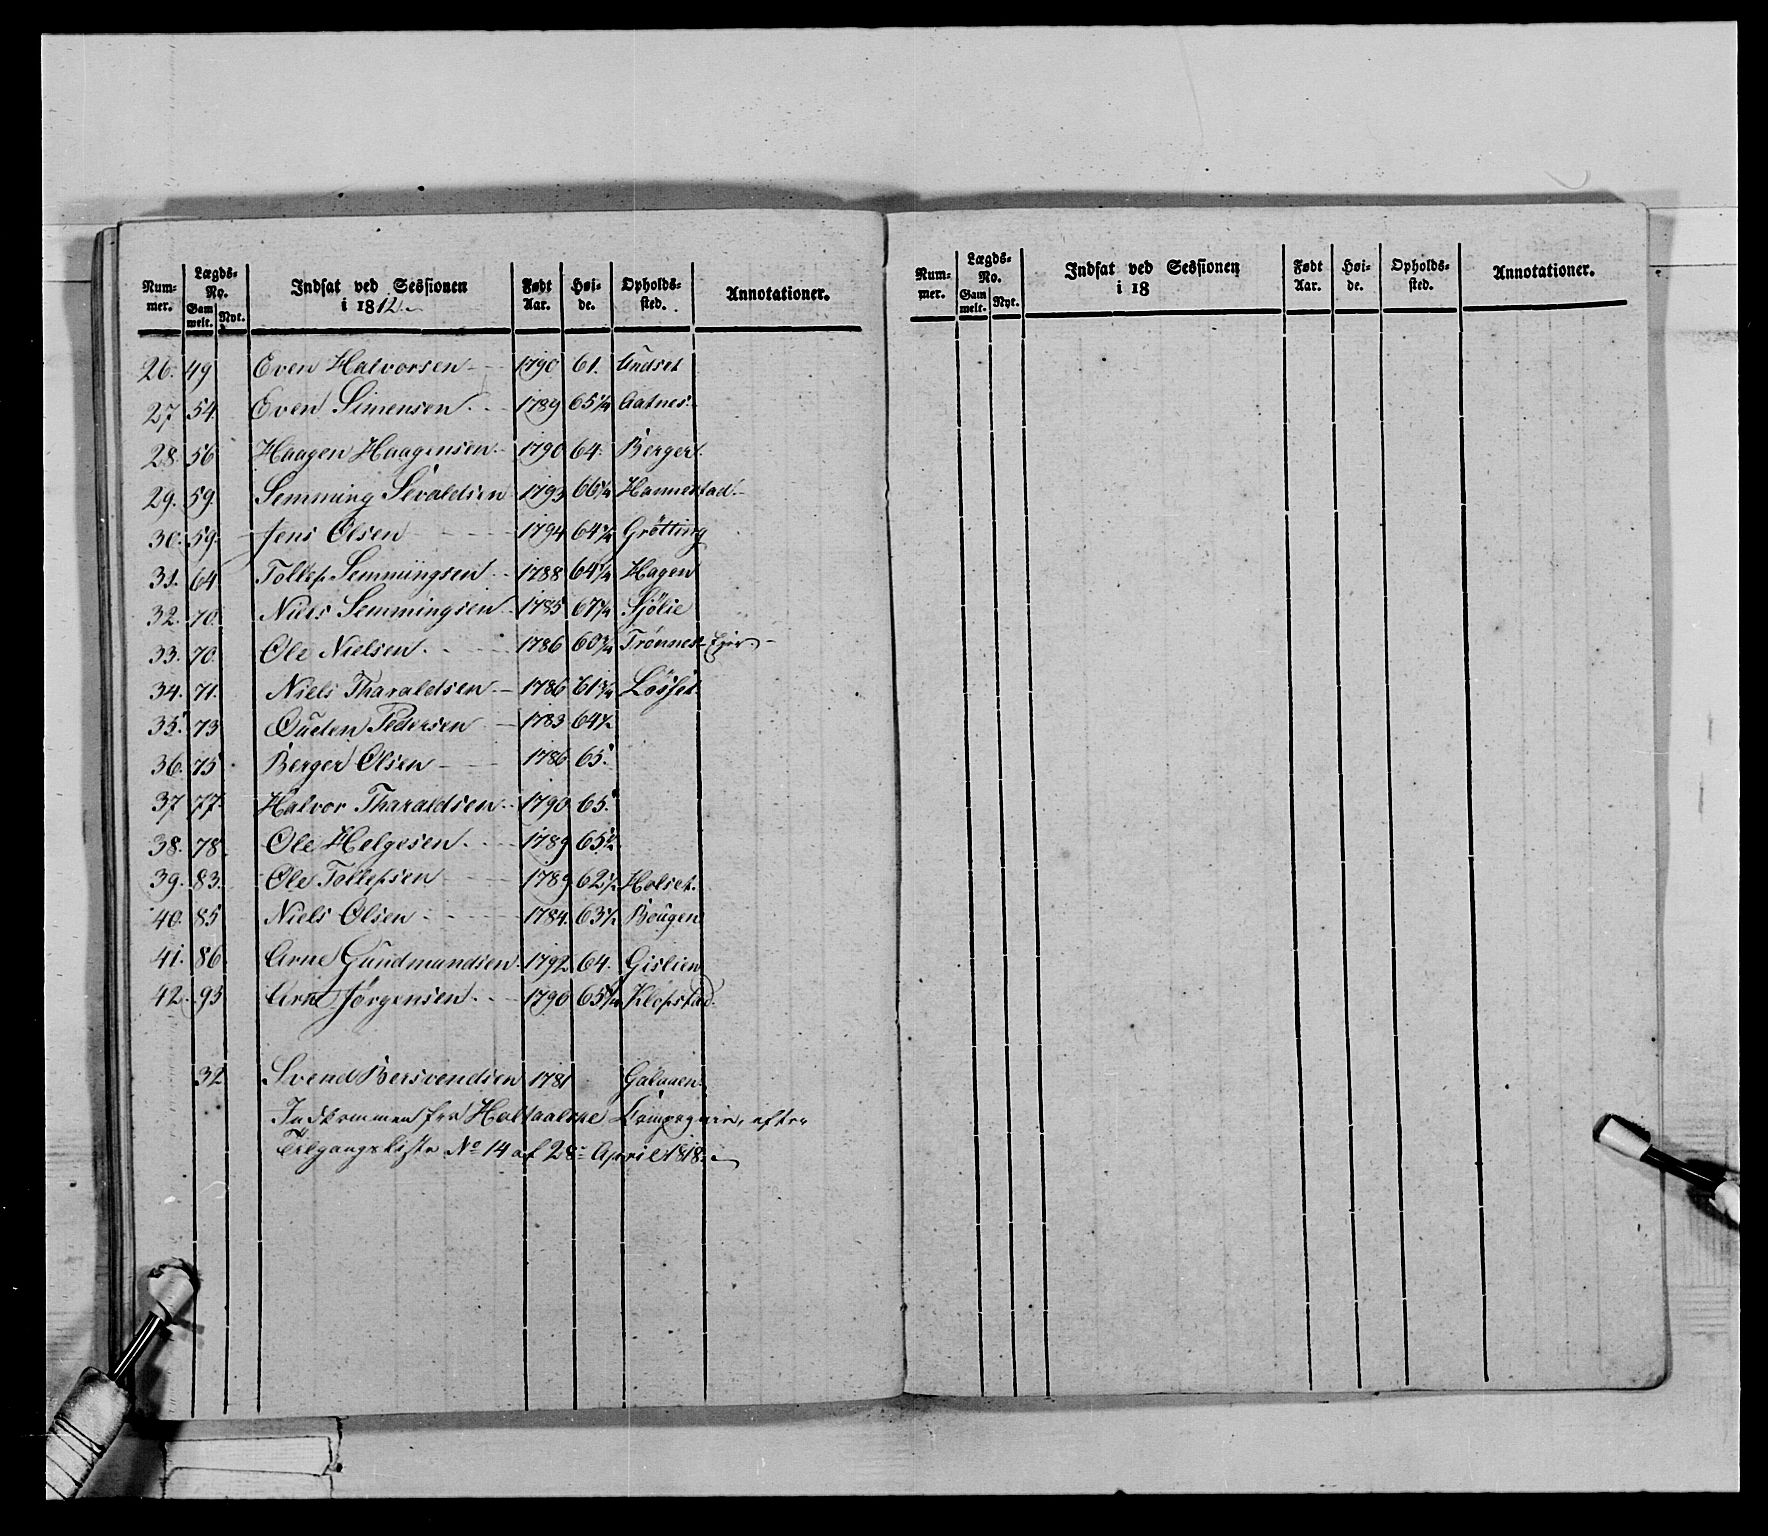 Num-mer. Lægds-No. Gam melt. Nyt. Indsat ved Sessionen i 1812. Født Aar. Høi-de. Opholds-sted. Annotationer.
26. 49 Even Halvorsen 1790 61. Undset
27 54. Even Simensen 1789 65 1/4 Aatnes
28. 56 Haagen Haagensen 1790 64. Berger
29. 59. Semming Sivaldsen 1793 66 1/4 Hannestad
30. 59. Jens Olsen 1794 Grötting
31. 64 Tollef Semmingsen 1788 Hagen
32. 70. Niels Semmingsen 1785 Sjölie
33. 70. Ole Nielsen 1786 60 3/4 Trönnes
34. 71. Niels Tharaldsen 1786 61 3/4 Lösset
35. 73 Ouden Pedersen 1783 64 1/2
36. 75 Berger Olsen 1786 65.
37 77. Halvor Tharaldsen 1790 65.
38. 78. Ole Helgesen 1789 65 1/2
39. 83. Ole Tollefsen 1789 62 1/2 Holset.
40. 85 Niels Olsen 1784. 63 1/2 Bougen
41. 86 Arne Gundmundsen 1792 64. Gislien
42. 95 Arne Jörgensen 1790 65 1/4 Klopstad.
32 Svend Bersvendsen 1781 Galaaen
Indkommen fra Holtaalske Compagnie, efter
Tilgangsliste No 14 af 28 April 1818.
Num-mer. Lægds-No. Gam melt. Nyt. Indsat ved Sessionen i 18 Født Aar. Høi-de. Opholds-sted. Annotationer.